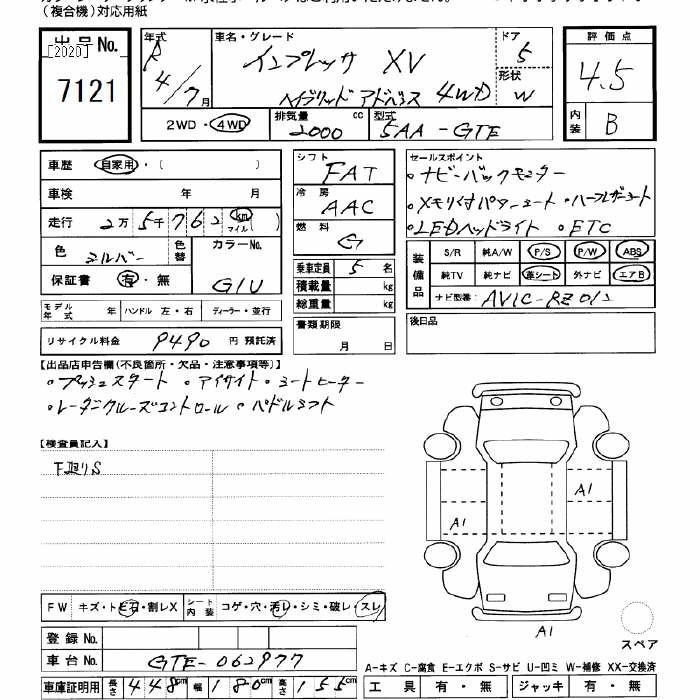 （複合機）対応用紙
出品No.
[2020]
7121
年式
R 4/7月
車名・グレード
インプレッサ XV
ハイブリッド アドバンス 4WD
ドア
5
形状
W
評価点
4.5
内装
B
2WD・4WD
排気量
2000 cc
型式
5AA-GTE
車歴 自家用・( )
車検 年 月
走行 2万5千762 km マイル( )
色 シルバー 色替 カラーNo. G1U
保証書 有・無
モデル年式 年 ハンドル 左・右 ディーラー・並行
リサイクル料金 9490 円 預託済
シフト FAT
冷房 AAC
燃料 G
乗車定員 5 名
積載量 kg
総重量 kg
書類期限
月 日
セールスポイント
・ナビ・バックモニター
・メモリ付パワーシート ・ハーフレザーシート
・LEDヘッドライト ・ETC
装備品
S/R 純A/W P/S P/W ABS
純TV 純ナビ 革シート 外ナビ エアB
ナビ型番: AVIC-RZ
後日品
【出品店申告欄(不良箇所・欠品・注意事項等)】
・プッシュスタート ・アイサイト ・シートヒーター
・レーダークルーズコントロール ・パドルシフト
【検査員記入】
下廻りS
A1
A1
A1
スペア
FW キズ・トビ石・割レX シート内装 コゲ・穴・汚レ・シミ・破レ・スレ
登録No.
車台No. GTE-062977
車庫証明用 長さ 448cm 幅 180cm 高さ 155cm
A-キズ C-腐食 E-エクボ S-サビ U-凹ミ W-補修 XX-交換済
工具 有・無 ジャッキ 有・無